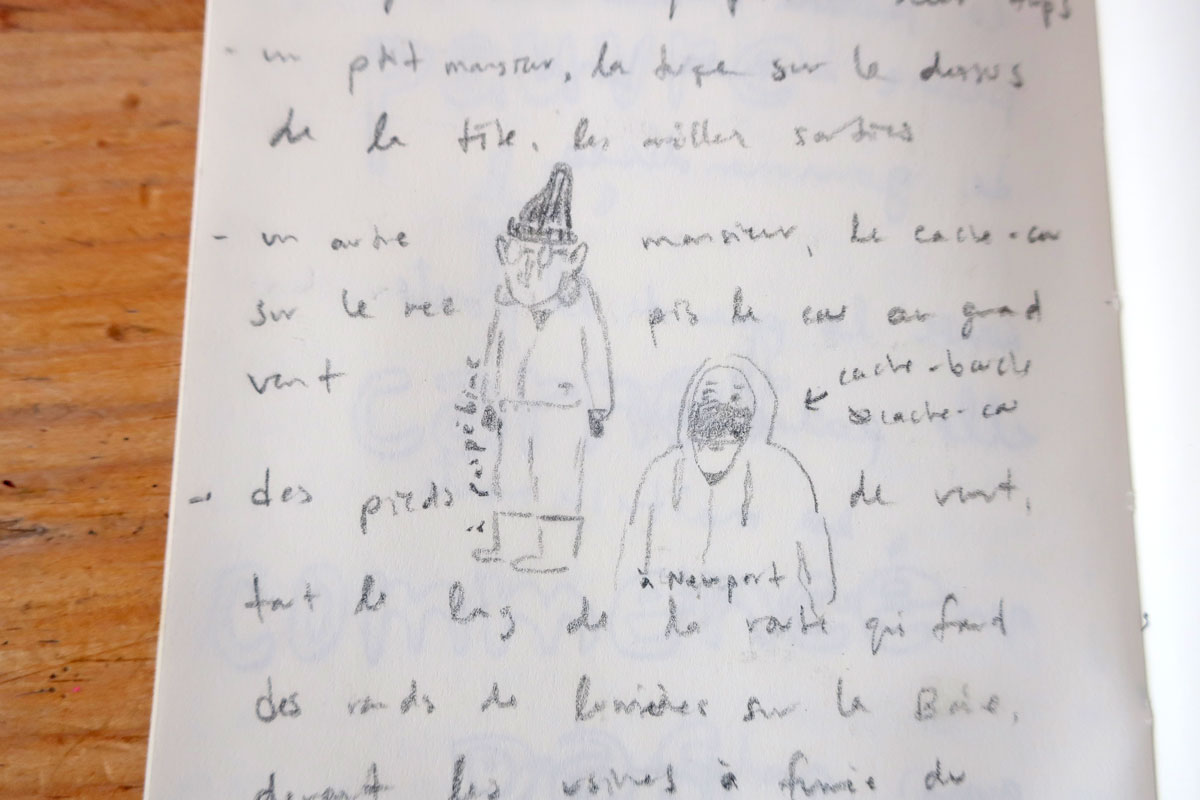 - un ptit monsieur, la tuque sur le dessus
de la tête, les oreilles sorties
- un autre monsieur, le cache-cou
sur le nez pis le cou au grand
vent
cache-bouche
cache-cou
à Paspébiac
- des pieds de vent,
tout le long de la route qui font
à Newport
des ronds de lumières sur la Baie,
devant les usines à fumée du